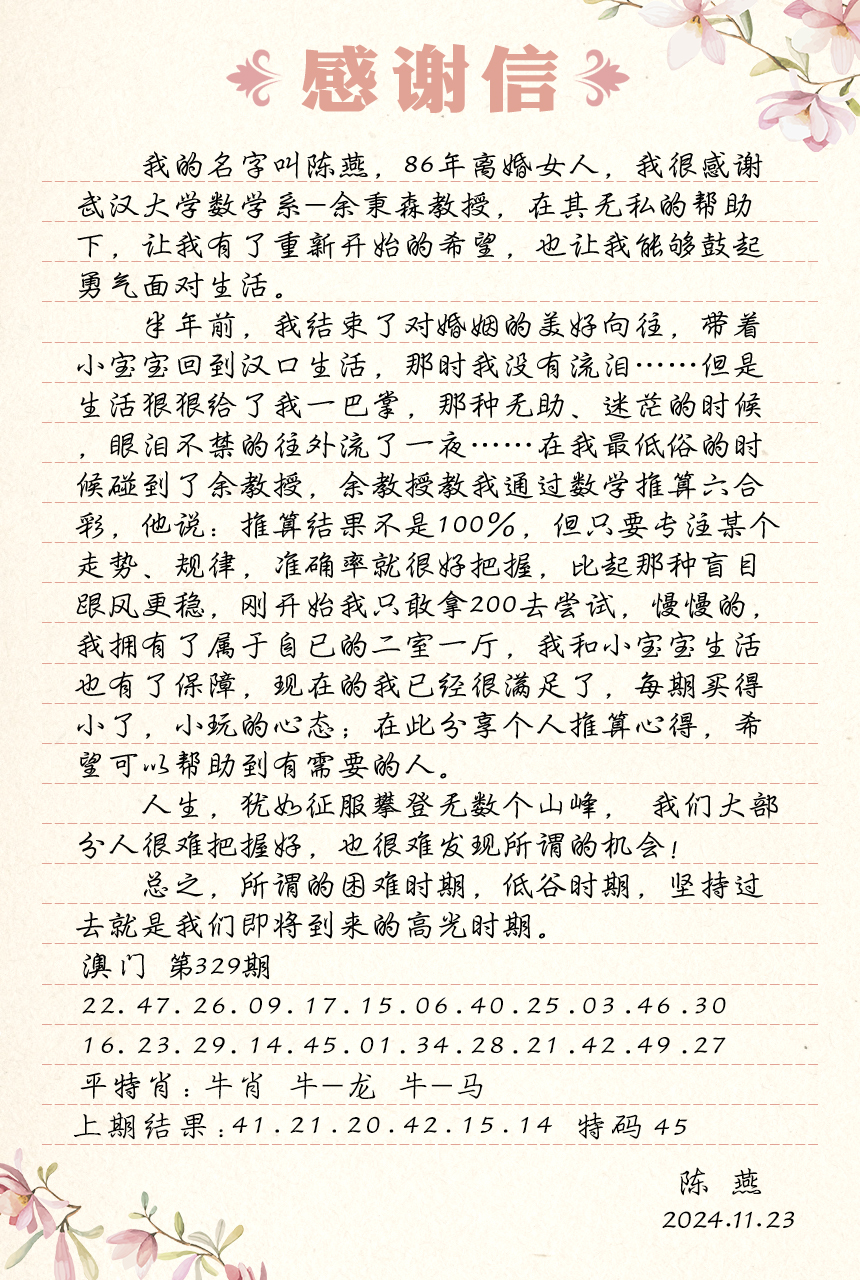 感谢信
我的名字叫陈燕，86年离婚女人，我很感谢
武汉大学数学系—余秉森教授，在其无私的帮助
下，让我有了重新开始的希望，也让我能够鼓起
勇气面对生活。
半年前，我结束了对婚姻的美好向往，带着
小宝宝回到汉口生活，那时我没有流泪……但是
生活狠狠给了我一巴掌，那种无助、迷茫的时候
，眼泪不禁的往外流了一夜……在我最低俗的时
候碰到了余教授，余教授教我通过数学推算六合
彩，他说：推算结果不是100%，但只要专注某个
走势、规律，准确率就很好把握，比起那种盲目
跟风更稳，刚开始我只敢拿200去尝试，慢慢的，
我拥有了属于自已的二室一厅，我和小宝宝生活
也有了保障，现在的我已经很满足了，每期买得
小了，小玩的心态；在此分享个人推算心得，希
望可以帮助到有需要的人。
人生，犹如征服攀登无数个山峰， 我们大部
分人很难把握好，也很难发现所谓的机会！
总之，所谓的困难时期，低谷时期，坚持过
去就是我们即将到来的高光时期。
澳门 第329期
22.47.26.09.17.15.06.40.25.03.46.30
16.23.29.14.45.01.34.28.21.42.49.27
平特肖：牛肖 牛—龙 牛—马
上期结果：41.21.20.42.15.14 特码 45
陈 燕
2024.11.23